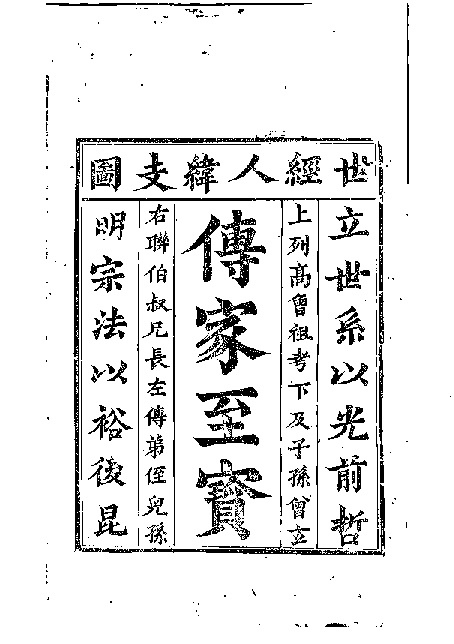 世經人緯支圖
立世系以光前哲
上列高曾祖考下及子孫曾玄
傳家至寶
右聯伯叔兄長左傳弟侄兒孫
明宗法以裕後昆